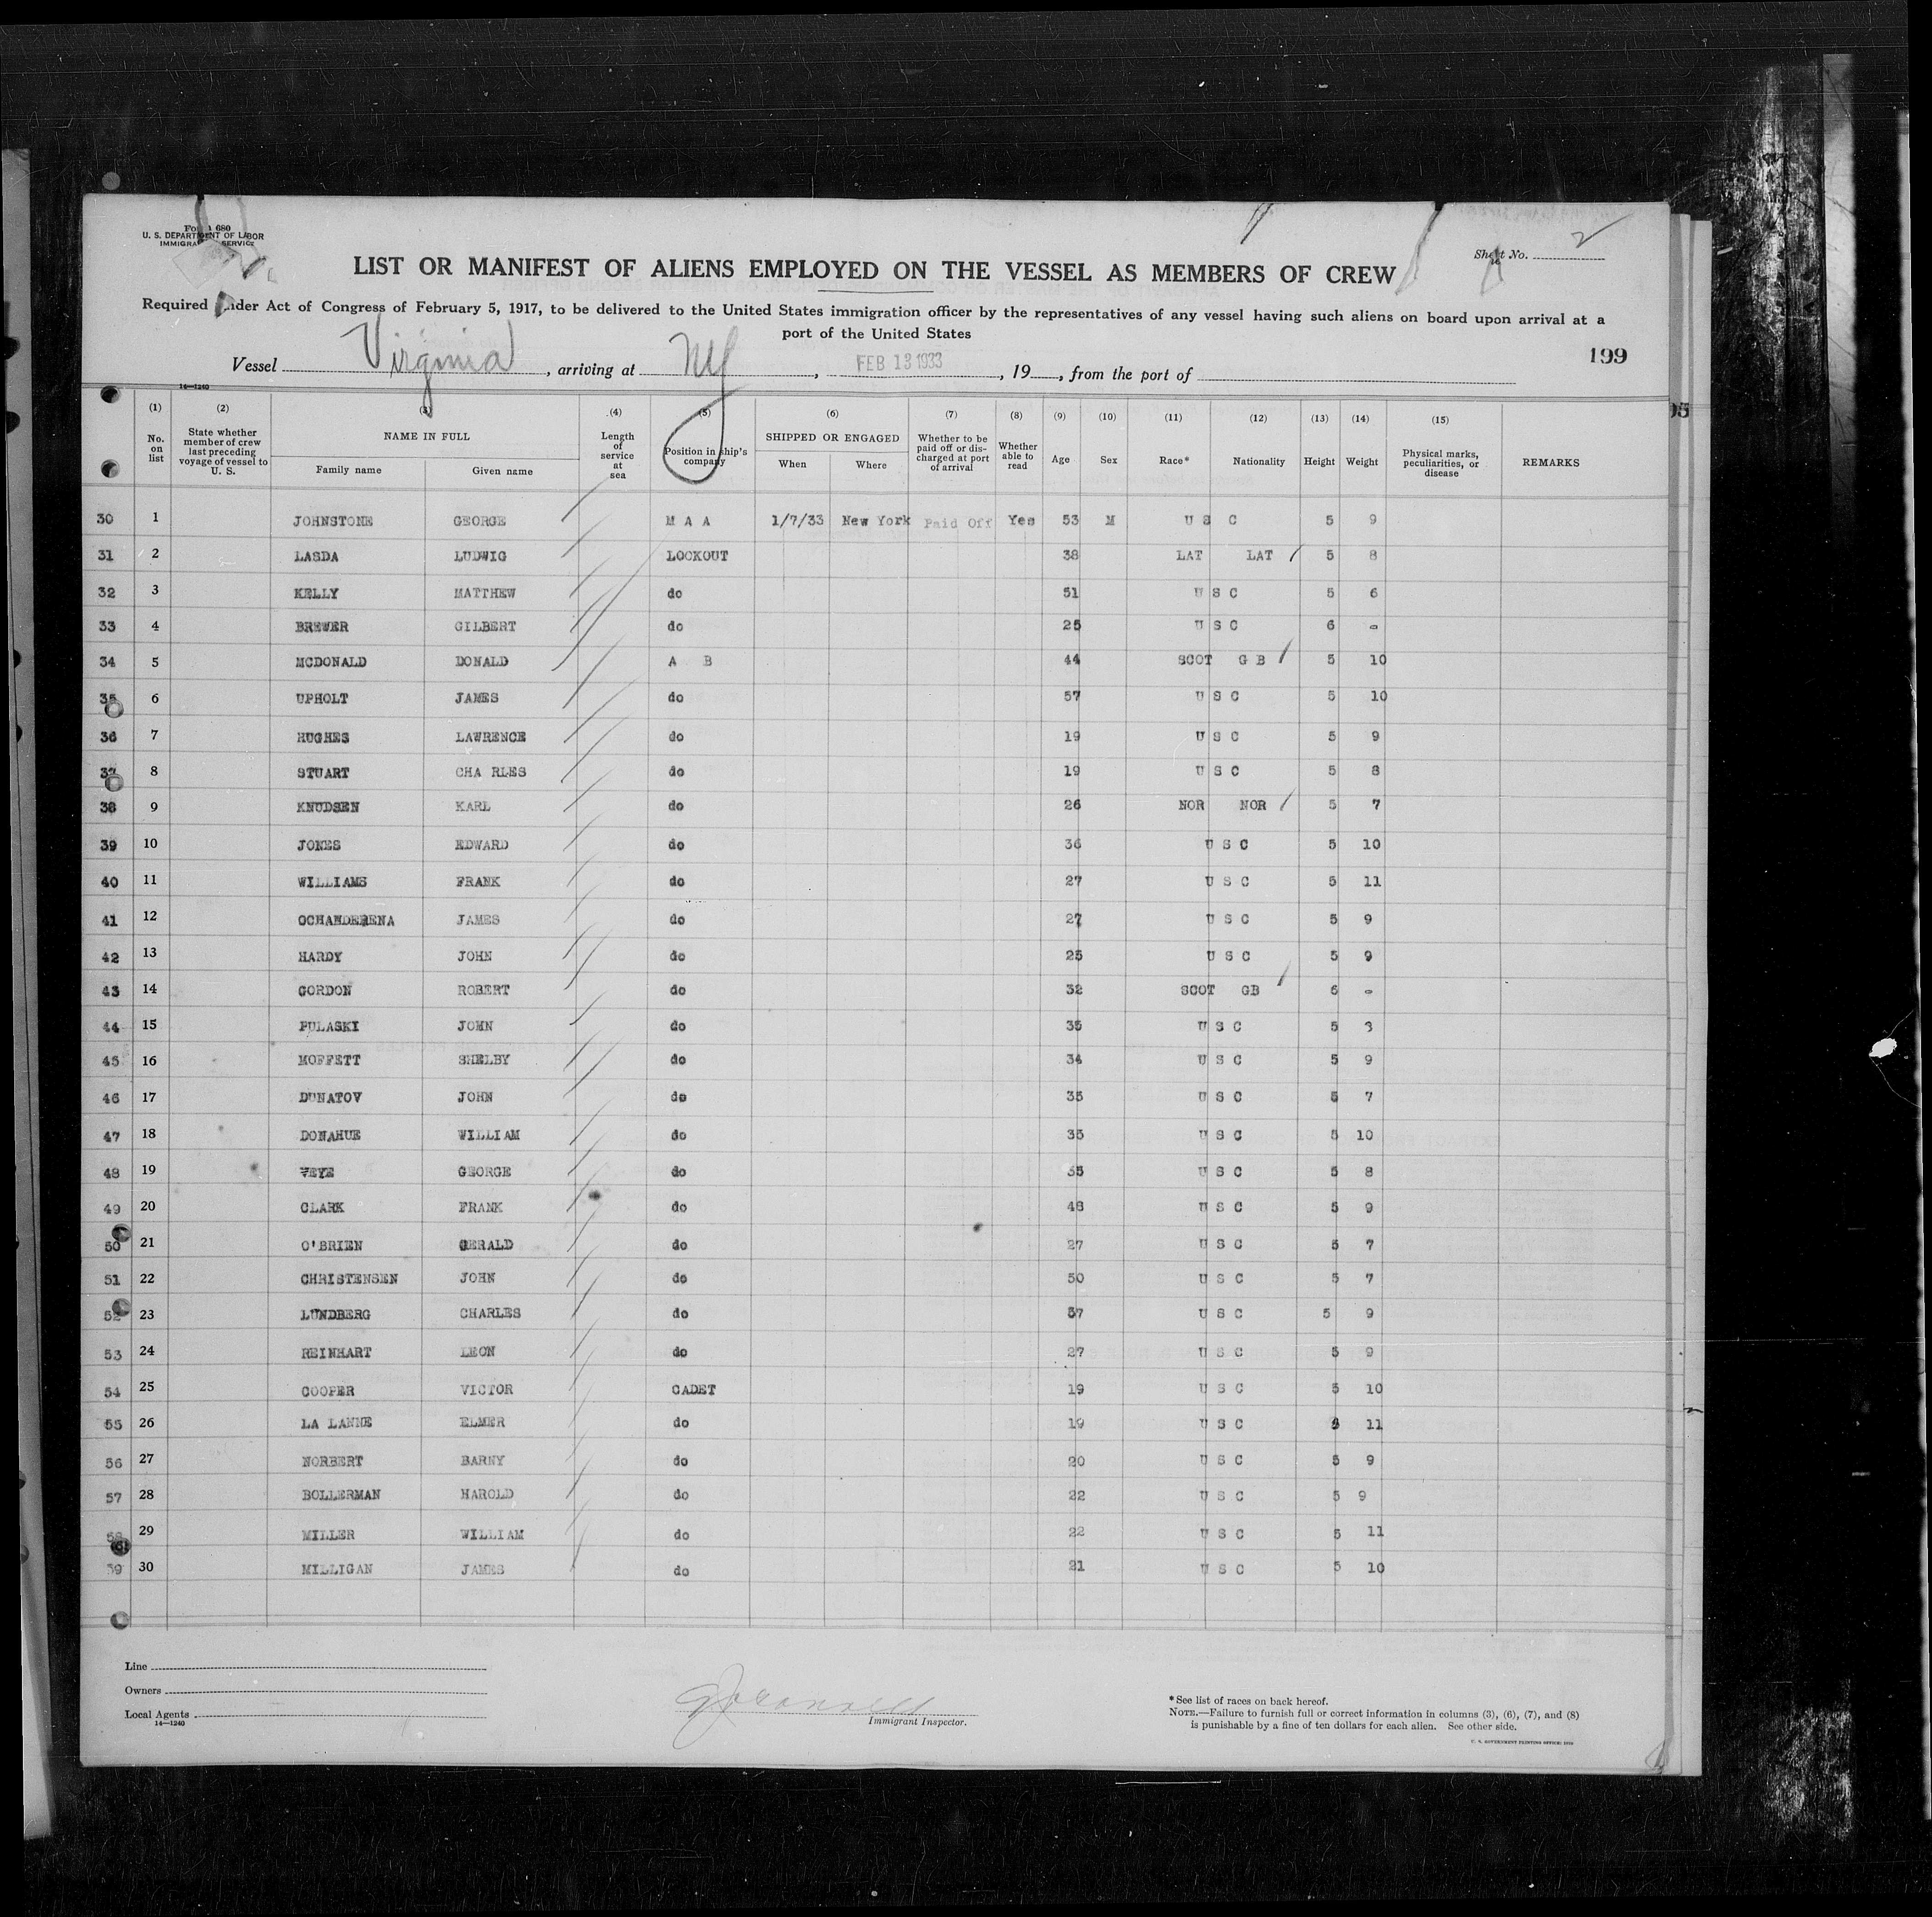 Form 680
U. S. DEPARTMENT OF LABOR
IMMIGRATION SERVICE
Sheet No. 2
LIST OR MANIFEST OF ALIENS EMPLOYED ON THE VESSEL AS MEMBERS OF CREW
Required under Act of Congress of February 5, 1917, to be delivered to the United States immigration officer by the representatives of any vessel having such aliens on board upon arrival at a
port of the United States
199
Vessel Virginia, arriving at NY, FEB 13 1933, 19, from the port of
14—1240
(1) (2) (3) (4) (5) (6) (7) (8) (9) (10) (11) (12) (13) (14) (15)
No. on list State whether member of crew last preceding voyage of vessel to U. S. NAME IN FULL Family name Given name Length of service at sea Position in ship's company SHIPPED OR ENGAGED When Where Whether to be paid off or discharged at port of arrival Whether able to read Age Sex Race* Nationality Height Weight Physical marks, peculiarities, or disease REMARKS
30 1 JOHNSTONE GEORGE M A A 1/7/33 New York Paid Off Yes 53 M U S C 5 9
31 2 LASDA LUDWIG LOOKOUT 38 LAT LAT 5 8
32 3 KELLY MATTHEW do 51 U S C 5 6
33 4 BREWER GILBERT do 25 U S C 6 -
34 5 MCDONALD DONALD A B 44 SCOT G B 5 10
35 6 UPHOLT JAMES do 57 U S C 5 10
36 7 HUGHES LAWRENCE do 19 U S C 5 9
37 8 STUART CHA RLES do 19 U S C 5 8
38 9 KNUDSEN KARL do 26 NOR NOR 5 7
39 10 JONES EDWARD do 36 U S C 5 10
40 11 WILLIAMS FRANK do 27 U S C 5 11
41 12 OCHANDERENA JAMES do 27 U S C 5 9
42 13 HARDY JOHN do 25 U S C 5 9
43 14 GORDON ROBERT do 32 SCOT GB 6 -
44 15 PULASKI JOHN do 35 U S C 5
45 16 MOFFETT SHELBY do 34 U S C 5 9
46 17 DUNATOV JOHN do 35 U S C 5 7
47 18 DONAHUE WILLIAM do 35 U S C 5 10
48 19 VEYE GEORGE do 35 U S C 5 8
49 20 CLARK FRANK do 48 U S C 5 9
50 21 O'BRIEN GERALD do 27 U S C 5 7
51 22 CHRISTENSEN JOHN do 50 U S C 5 7
52 23 LUNDBERG CHARLES do 37 U S C 5 9
53 24 REINHART LEON do 27 U S C 5 9
54 25 COOPER VICTOR CADET 19 U S C 5 10
55 26 LA LANNE ELMER do 19 U S C 5 11
56 27 NORBERT BARNY do 20 U S C 5 9
57 28 BOLLERMAN HAROLD do 22 U S C 5 9
58 29 MILLER WILLIAM do 22 U S C 5 11
59 30 MILLIGAN JAMES do 21 U S C 5 10
Line
Owners
Local Agents
14—1240
Immigrant Inspector.
*See list of races on back hereof.
NOTE.—Failure to furnish full or correct information in columns (3), (6), (7), and (8)
is punishable by a fine of ten dollars for each alien. See other side.